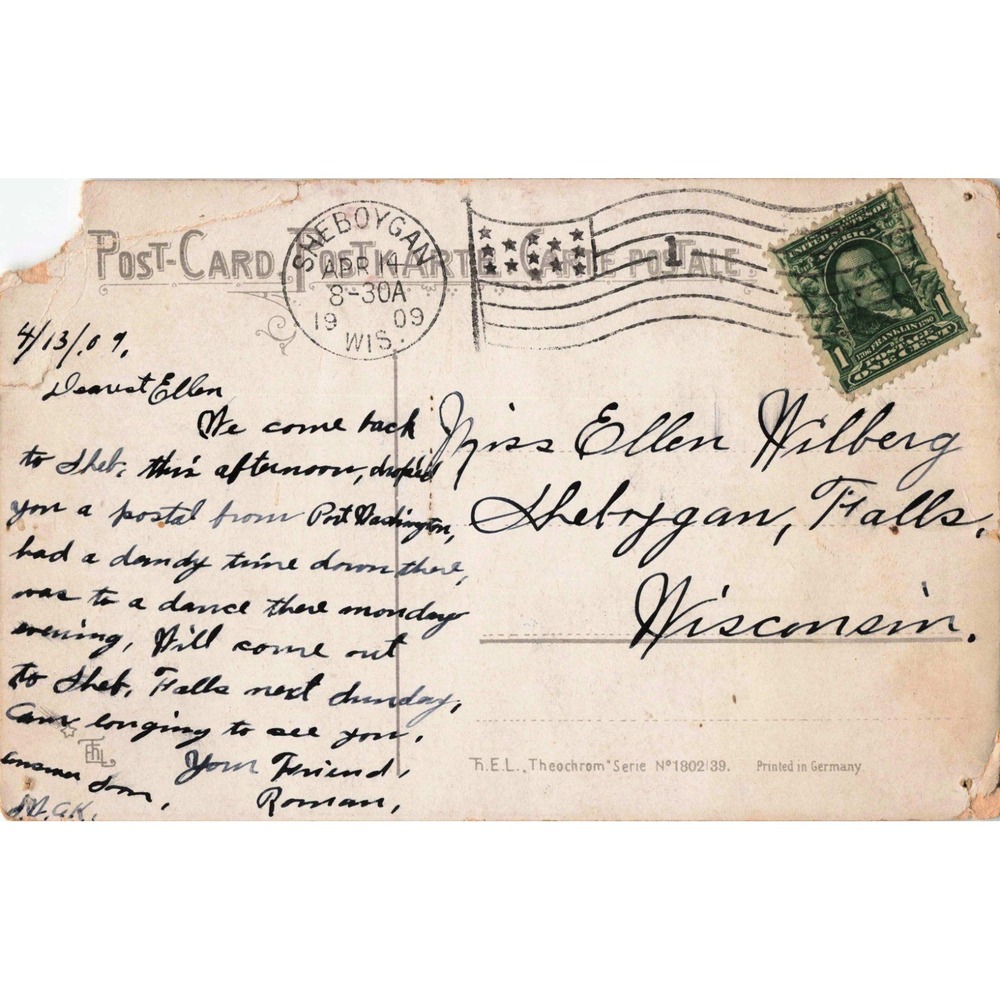 POST-CARD. POSTKARTE. CARTE POSTALE.
SHEBOYGAN
APR 14
8-30A
1909
WIS.
1
UNITED STATES OF AMERICA
1706 FRANKLIN 1790
POSTAGE
1 ONE CENT 1
4/13/.09.
Dearest Ellen
We come back
to Sheb. this afternoon, droped
you a postal from Port Washington,
had a dandy time down there,
was to a dance there monday
evening, Will come out
to Sheb. Falls next sunday,
Am longing to see you.
Your Friend,
answer soon,
Roman,
Miss Ellen Wilberg
Sheboygan, Falls,
Wisconsin.
EhL
Th.E.L. „Theochrom" Serie Nº 1802/39.
Printed in Germany